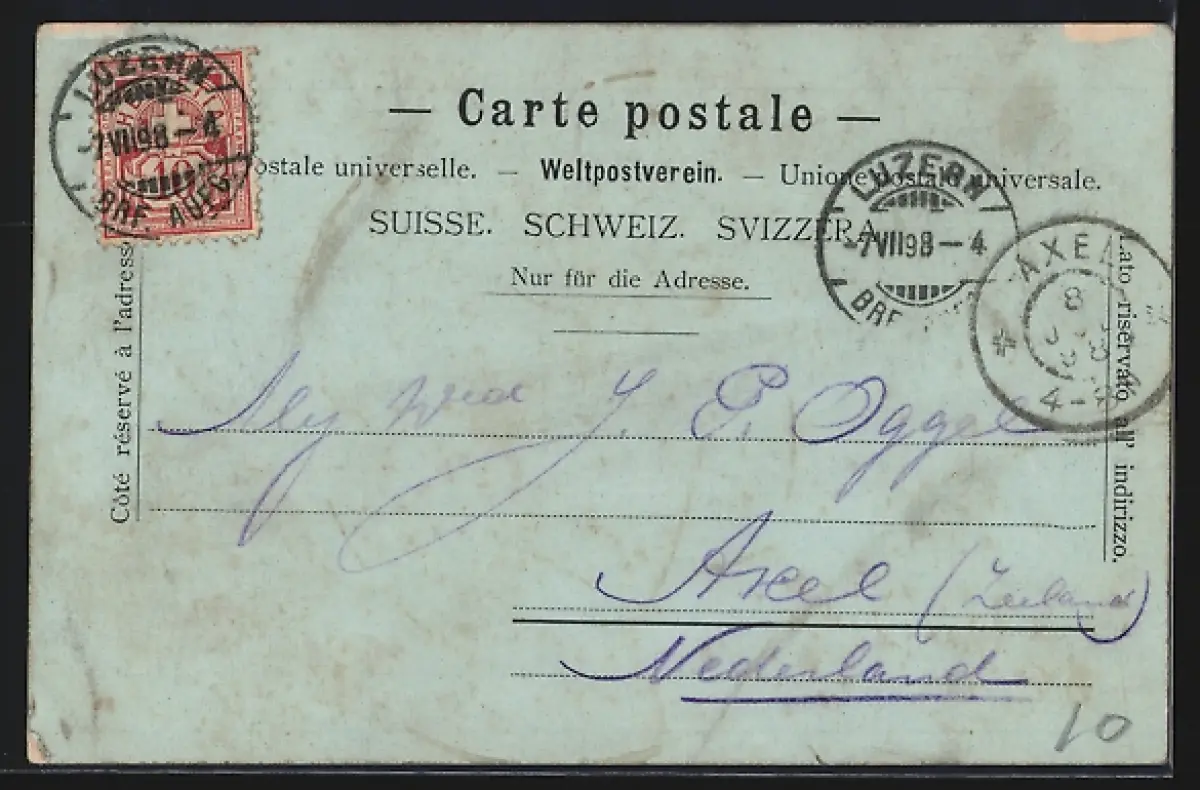 — Carte postale —
ostale universelle. — Weltpostverein. — Unione postale universale.
SUISSE. SCHWEIZ. SVIZZERA
Nur für die Adresse.
Côté réservé à l'adresse
Lato riservato all' indirizzo.
LUZERN
-7VII98-4
BRF. AUFG.
10
LUZERN
-7VII98-4
BRF.
AXEL
8
4-
J. P. Oggel
Axel (Zeeland)
Nederland
10